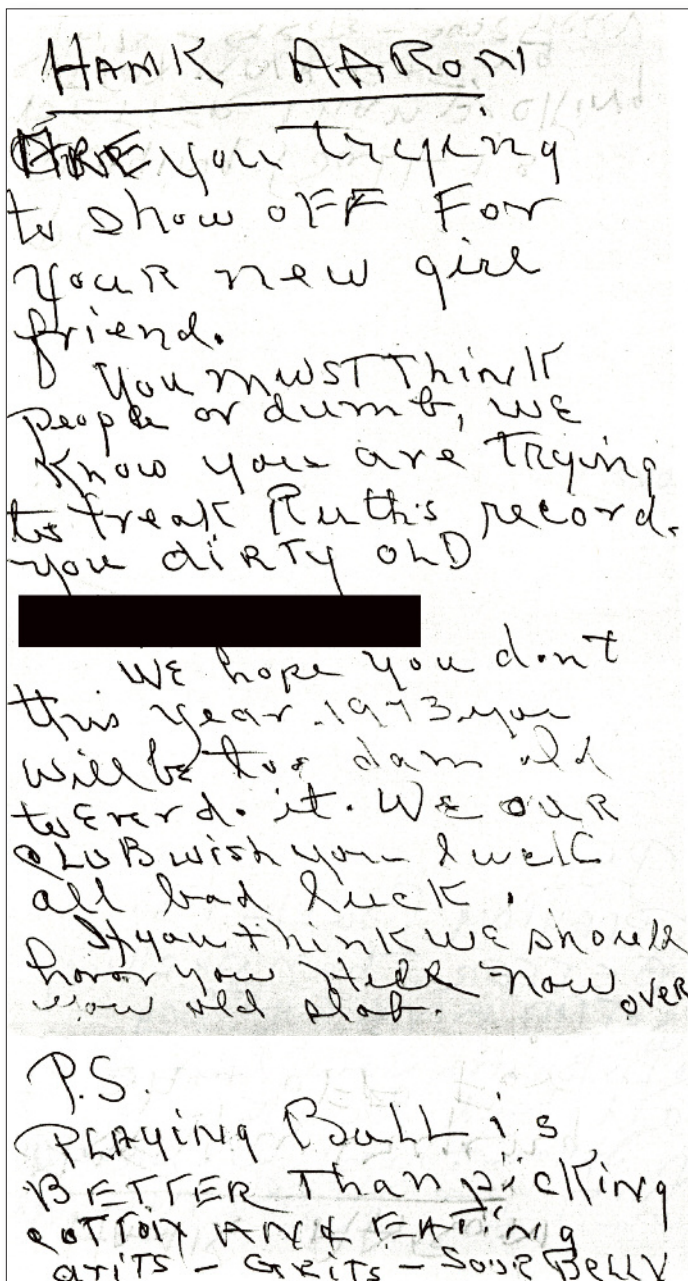 HANK AARON
ARE you trying
to show oFF For
youR new girl
friend.
You must Think
people or dumb, WE
know you are TRying
to freak Ruth's record.
you diRTy OLD
WE hope you don't
this year 1973 you
will be too dam old
to it. WE OUR
CLUB wish you luck
all bad luck.
If you think WE should
honor you Hell Now
old slob. OVER
P.S.
PLAYING BALL is
BETTER Than picking
COTTON AND EATING
GRITS - GRITS - SOUR BELLY